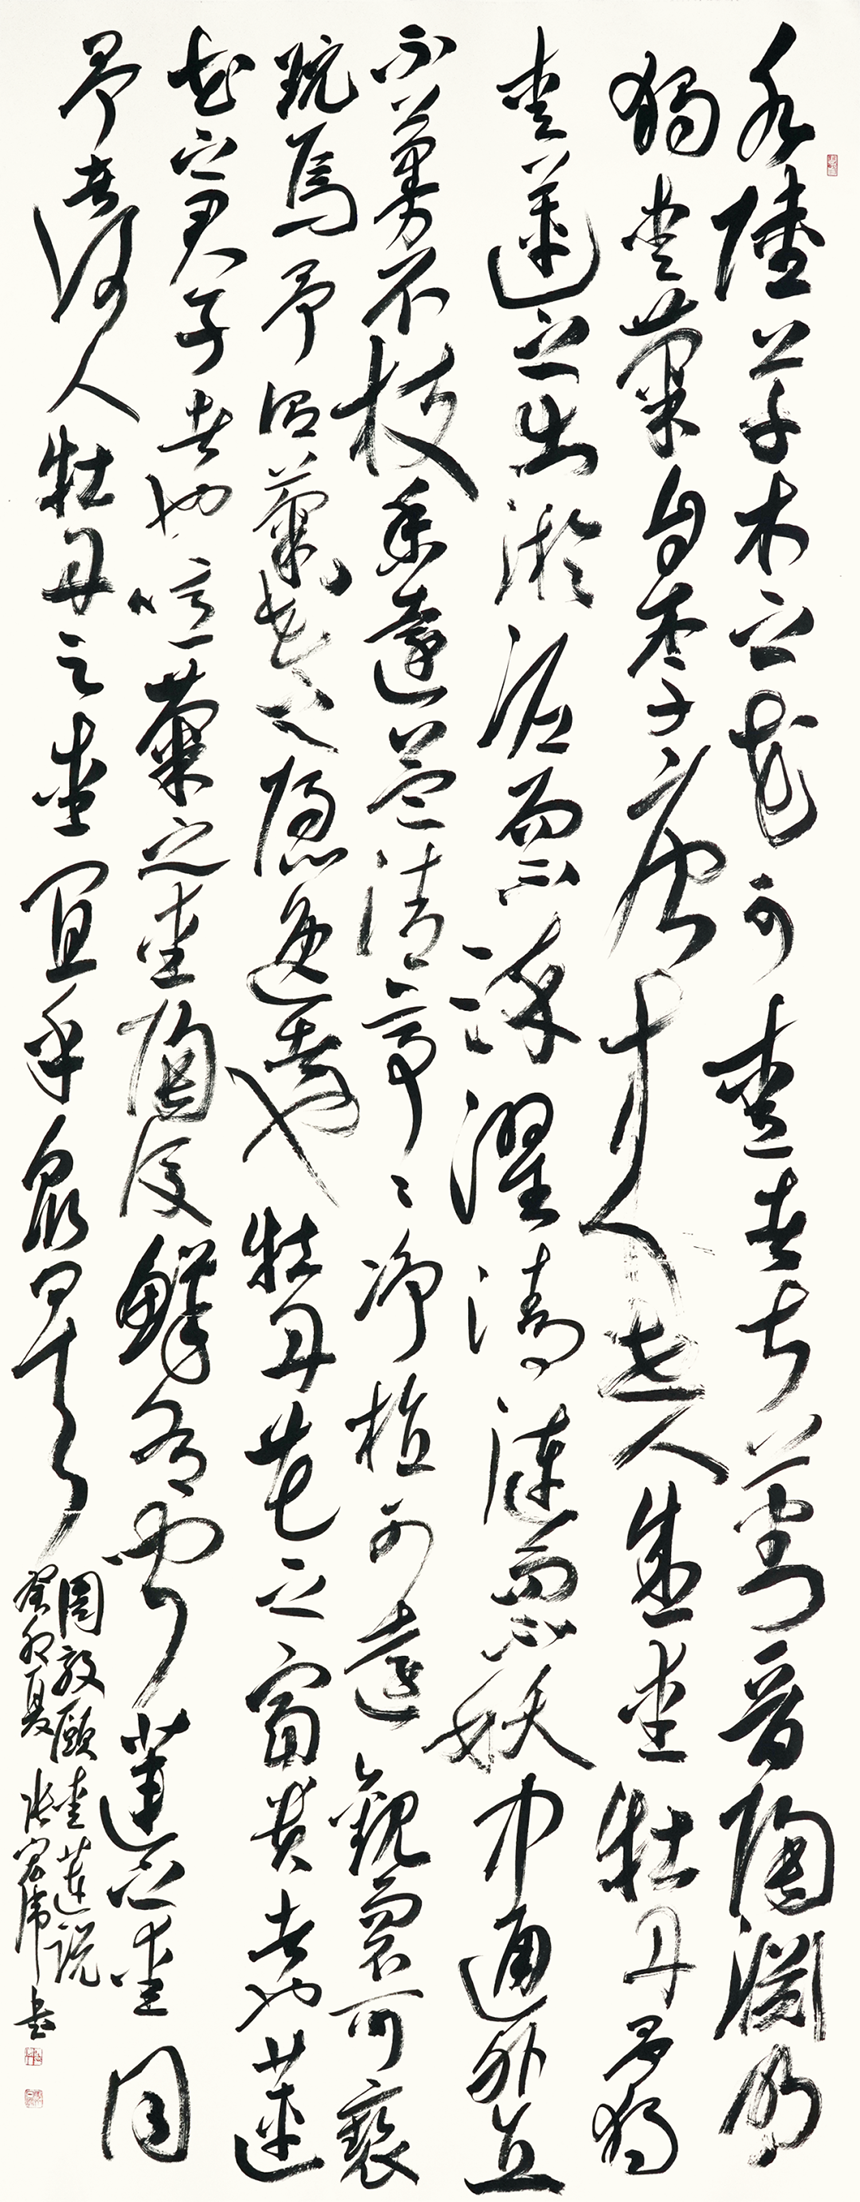 水陸草木之花可愛者甚蕃晉陶淵明
獨愛菊自李唐来世人盛愛牡丹予獨
愛蓮之出淤泥而不染濯清漣而不妖中通外直
不蔓不枝香遠益清亭〻净植可遠觀而不可褻
玩焉予謂菊花之隱逸者也牡丹花之富貴者也蓮
花之君子者也噫菊之愛陶後鮮有聞蓮之愛同
予者何人牡丹之愛宜乎衆矣
周敦頤愛蓮説
癸卯夏 张 书